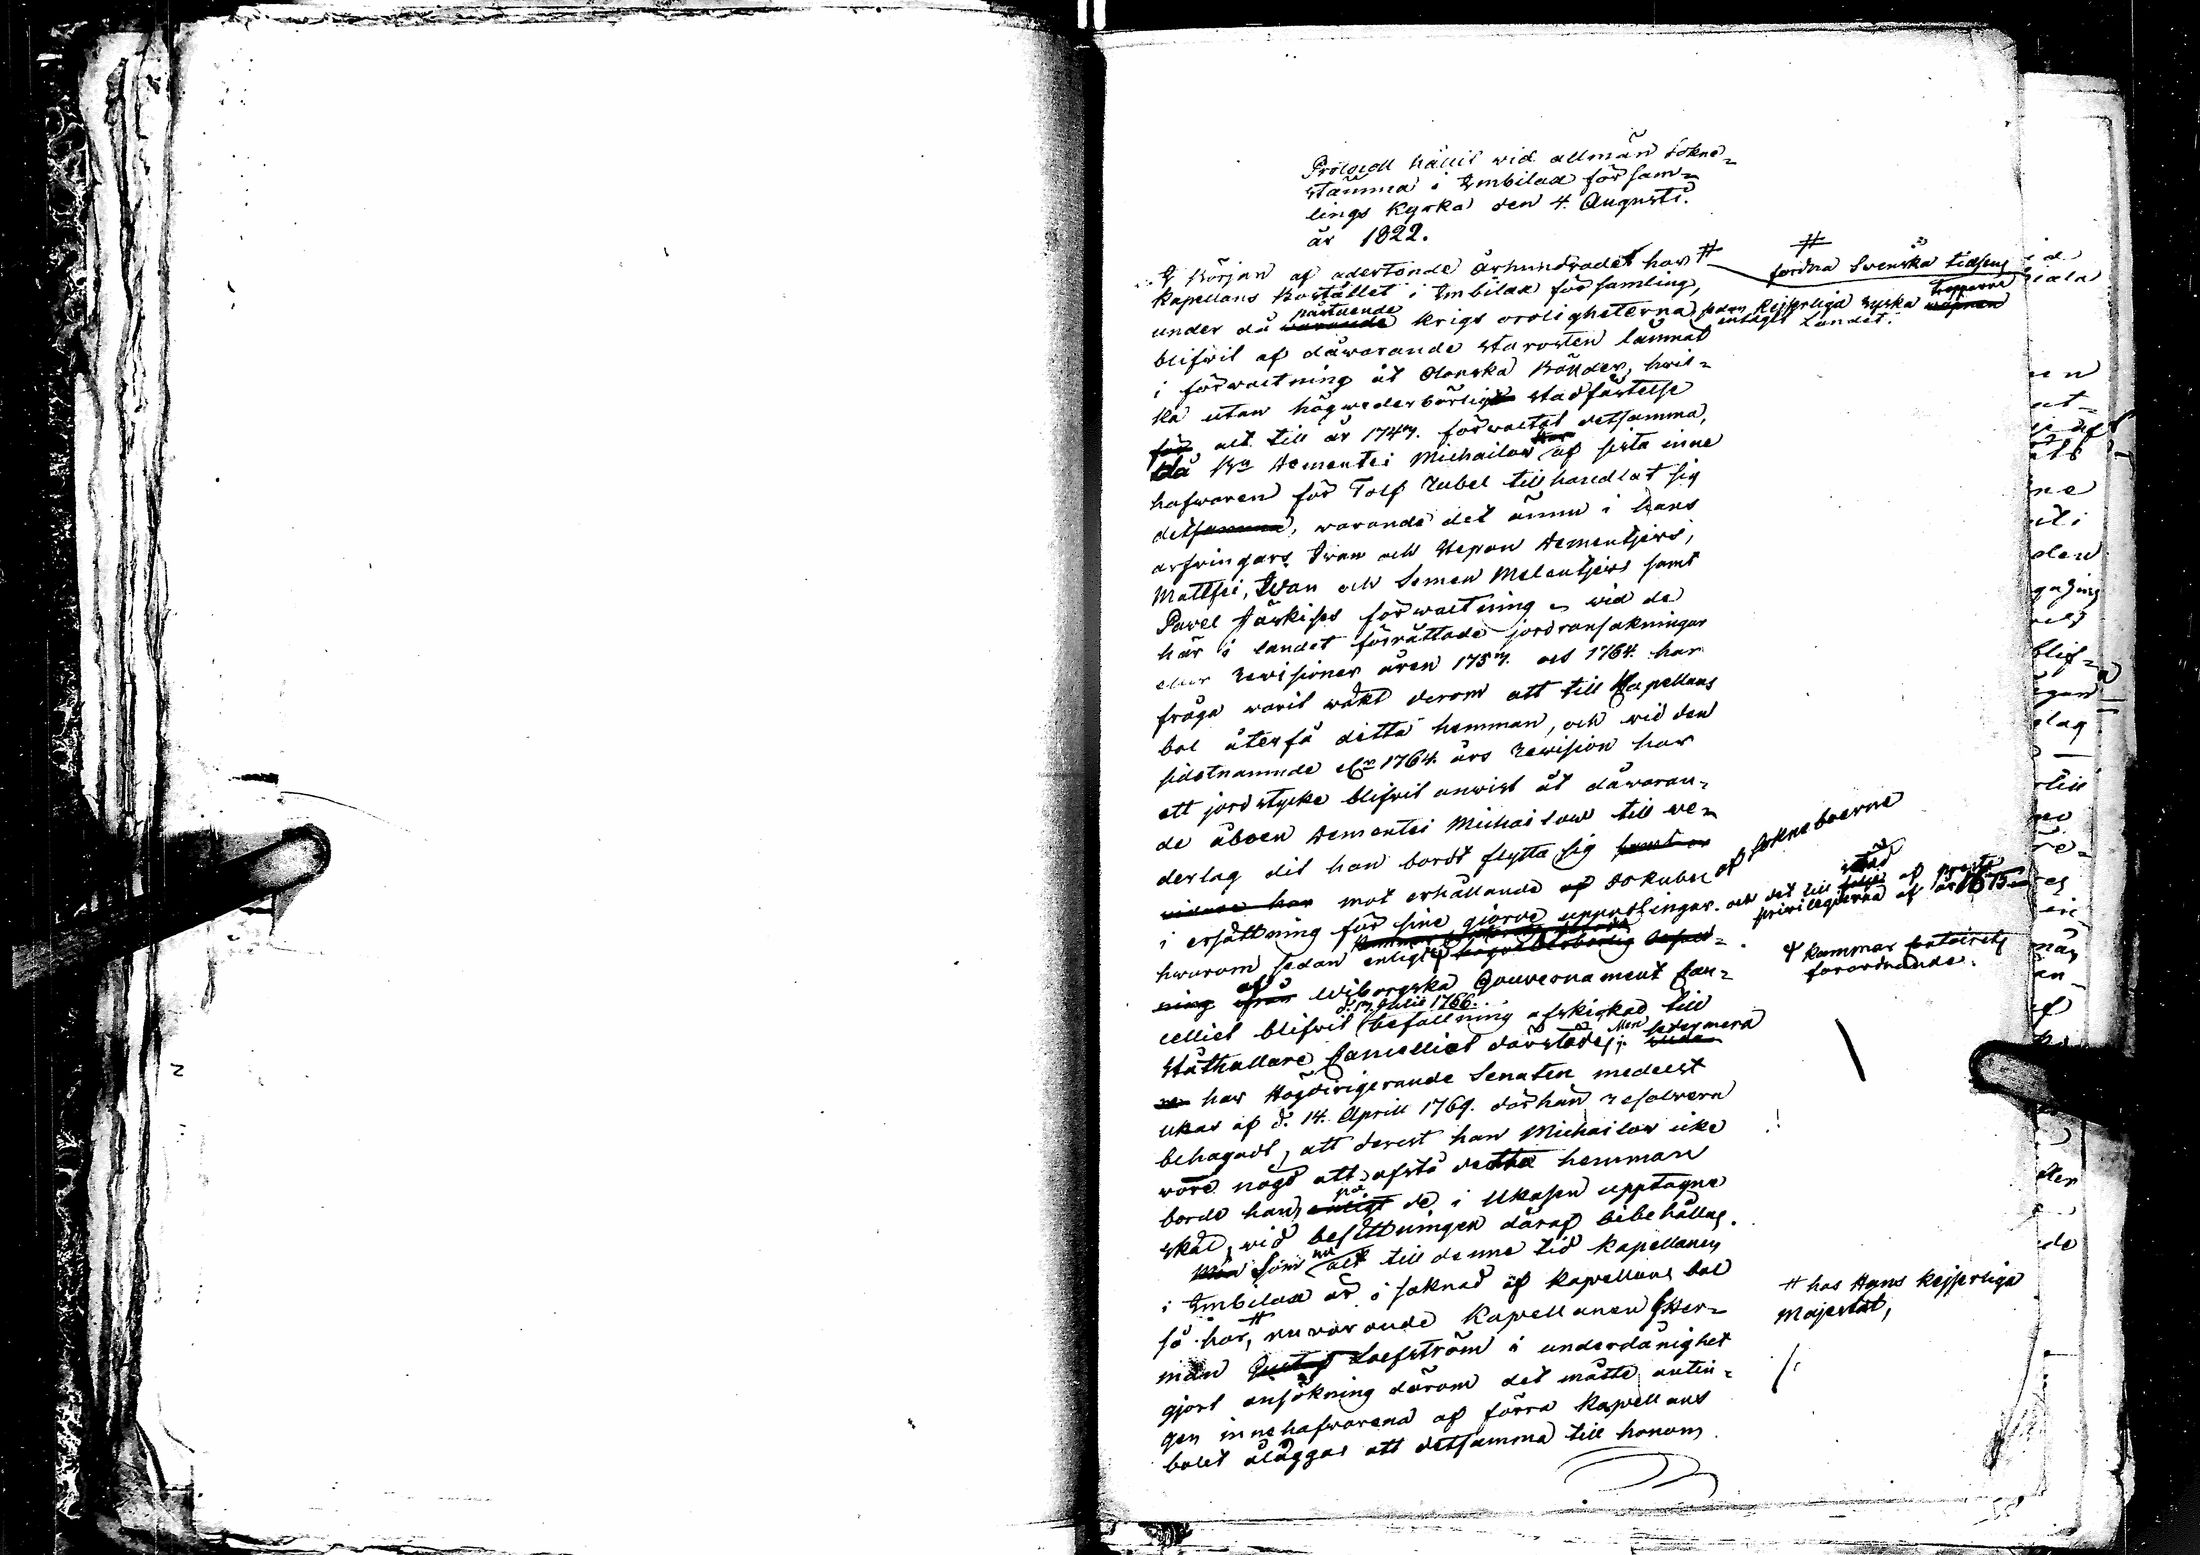 Protocoll hållit vid allmän Sokne-
stämma i Imbilax försam-
lings Kyrka den 4. Augusti.
år 1822.
I Början af adertonde århundradet har #
Kapellans Bostället i Imbilax församling,
under då påstående krigs oroligheterna
blifvit af dåwarande starosten lämnat
i förwaltning åt Olonska Bönder, hwil-
ka utan högwederbörlig stadfästelse
alt till år 1747. förwaltat detsamma,
då Bn Dementei Michailow af sista inne
hafwaren för Tolf Rubel tillhandlat sig
det, warande det ännu i hans
arfwingars Iwan och Stepan Dementjews,
Mattfei, Iwan och Semen Melentjews samt
Pavel förwaltning wid de
här i landet förrättade jordransakningar
eller Revisioner åren 1757. och 1764. har
fråga warit wäkt derom att till Kapellans
bol återfå detta hemman, och wid den
sidstnämnde 1764. års Revision har
ett jordstycke blifvit anwist åt dåwaran-
de åboen Dementei Michailow till we-
derlag dit han bordt flytta sig
mot erhållande af 20 Rubel af Sokneboerne
i ersättning för sine giorde uppodlingar. och det till stöd af preste
privilegierna af år 1675
hwarom sedan enligt
af Wiborgska Gouvernament Can-
celliet blifvit d. 17. Julii 1766. befallning afskickad till
Ståthållare Cancelliet därstädes; Men sedermera
har Högdirigerande Senaten medelst
Ukas af d. 14. Aprill 1769. därhän resolvera
behagadt, att derest han Michailow icke
wore nögd att afstå detta hemman
borde han, på de i Ukasen upptagne
skäl, wid besittningen däraf bibehållas.
Som nu alt till denne tid kapellanen
i Imbilax är i saknad af kapellans bol
så har, # nuvarande Kapellanen Her-
man Loefström i underdånighet
gjort ansökning därom det måtte antin-
gen innehafwarena af förra Kapellans
bolet åläggas att detsamma till honom
#
fordna Svenska tidens
sedan Kejserliga Ryska tropparne
intagit Landet.
Kammar Contoirets
förordnande.
# hos Hans Kejserliga
Majestät,